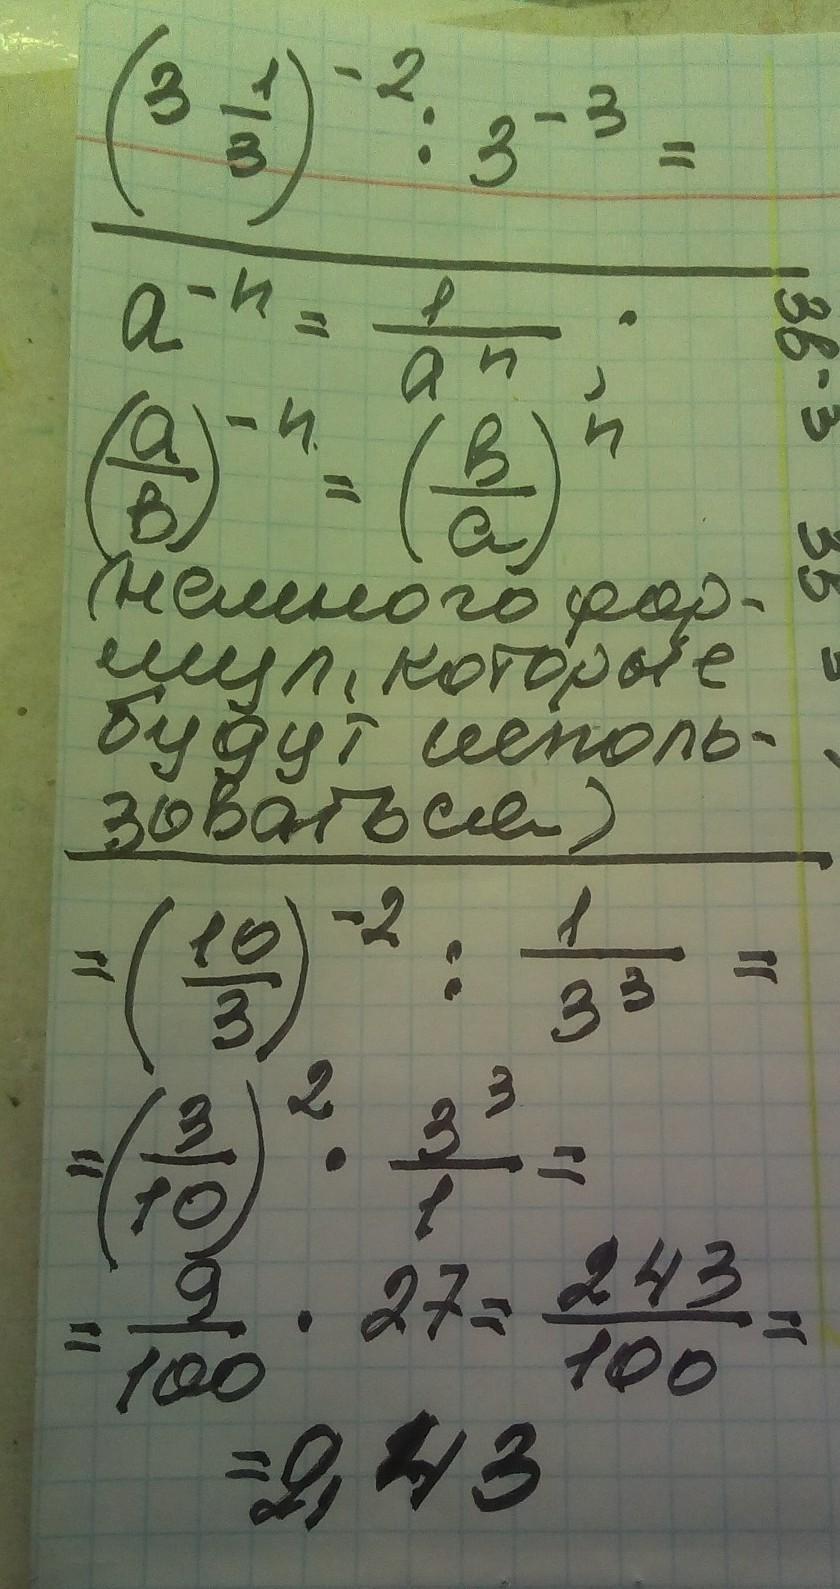 (3 1/3)^-2 : 3^-3 =
a^-n = 1/a^n ;
(a/в)^-n = (в/a)^n
(немного фор-
мул, которые
будут исполь-
зоваться)
= (10/3)^-2 : 1/3^3 =
= (3/10)^2 · 3^3/1 =
= 9/100 · 27 = 243/100 =
= 2,43